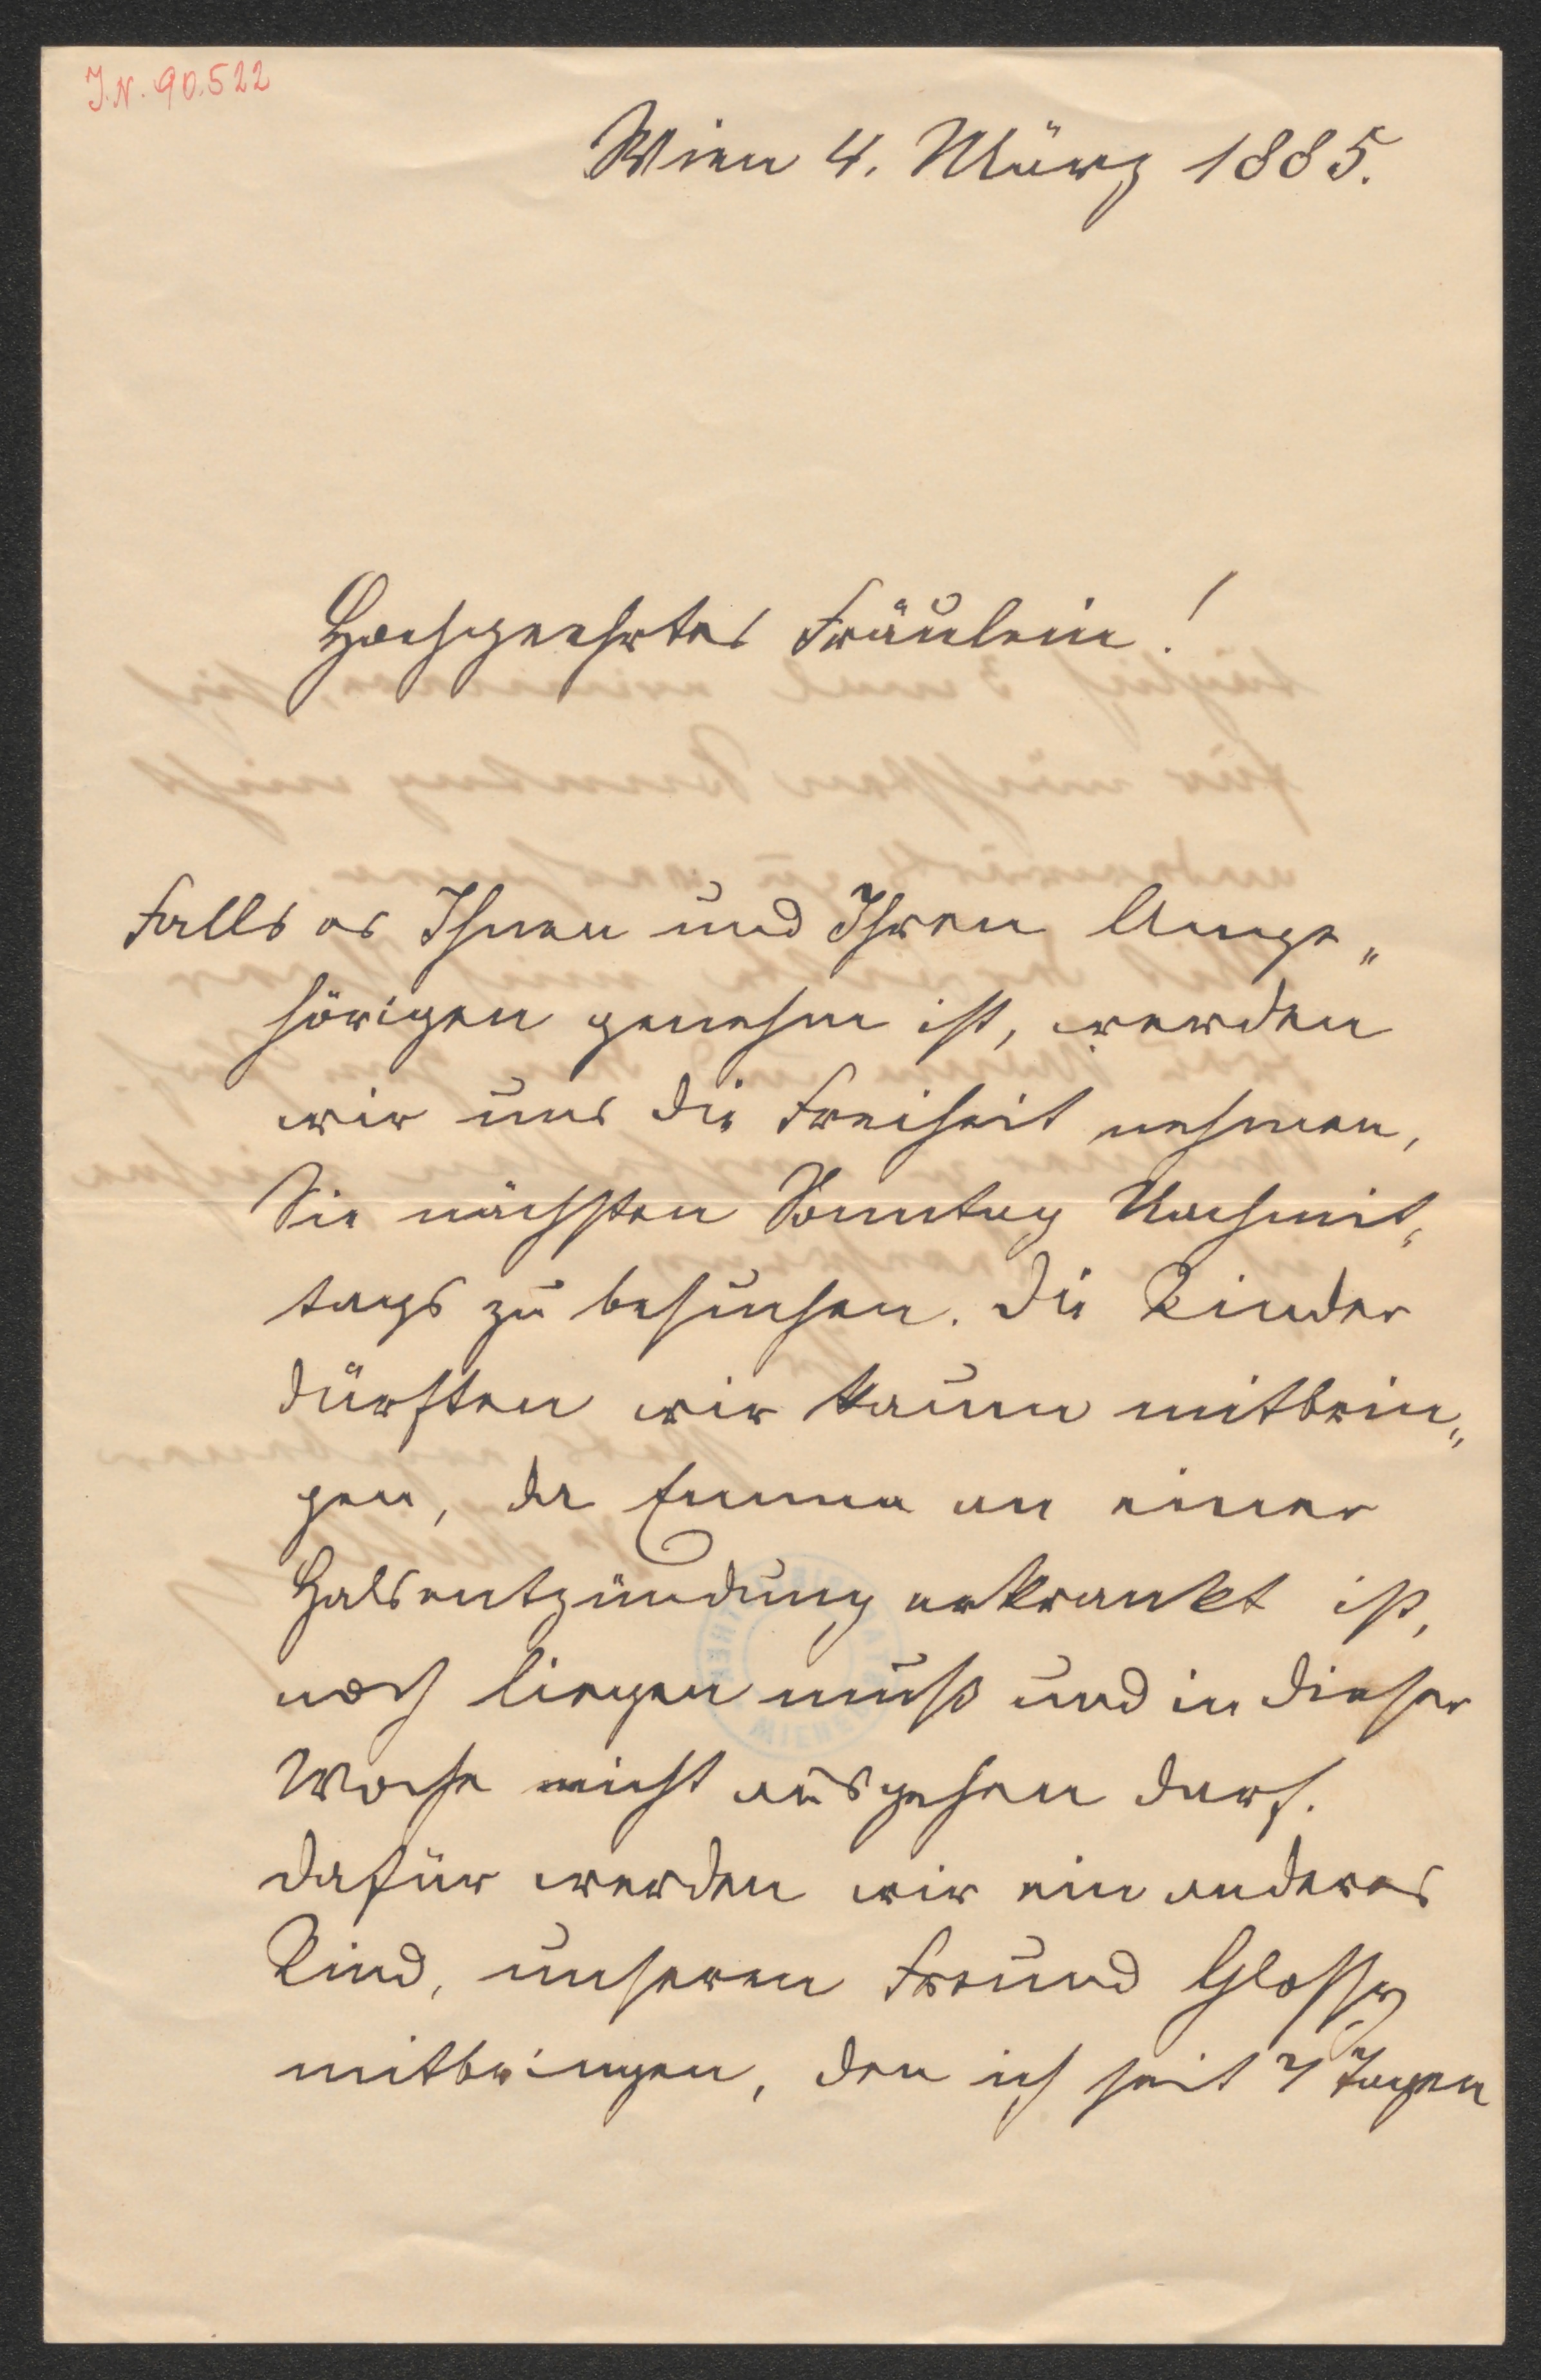 J.N. 90.522
Wien 4. März 1885.
Hochgeehrtes Fräulein!
Falls es Ihnen und Ihren Ange„
hörigen genehm ist, werden
wir uns die Freiheit nehmen,
Sie nächsten Sonntag Nachmit„
tags zu besuchen. Die Kinder
dürften wir kaum mitbrin„
gen, da Emma an einer
Halsentzündung erkrankt ist,
noch liegen muß und in dieser
Woche nicht ausgehen darf.
Dafür werden wir ein anderes
Kind, unseren Freund Glossy
mitbringen, den ich seit 4 Tagen